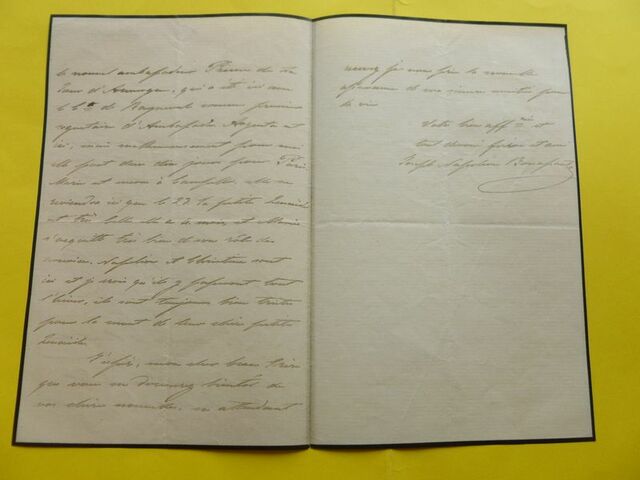 le nouvel ambassadeur Prince de La
Tour d'Auvergne, qui a été ici avec
le Cte de Rayneval comme premier
secrétaire d'Ambassade
ici, mais malheureusement pour moi
elle part dans dix jours pour Paris
Marie est encore à elle ne
reviendra ici que le 27. la petite Zénaïde
est très belle elle a 4 mois et Marie
s'acquitte très bien de son rôle de
nourrice. Napoléon et Christine sont
ici et je crois qu'ils y passeront tout
l'hiver, ils sont toujours bien tristes
pour la mort de leur chère petite
Zénaïde.
J'espère, mon cher beau frère
que vous me donnerez bientôt de
vos chères nouvelles, en attendant
recevez je vous prie la nouvelle
assurance de ma sincère amitié pour
la vie
Votre bien affné et
tout dévoué frère et ami
Joseph Napoléon Bonaparte